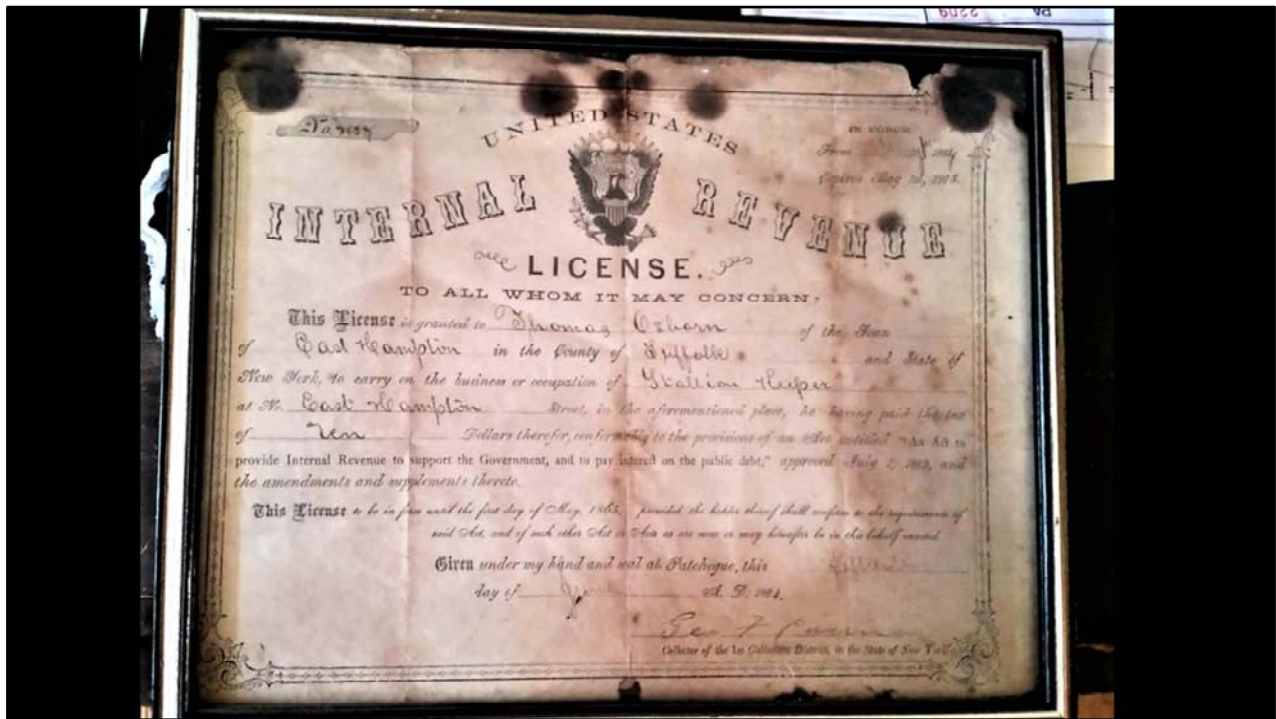 UNITED STATES
IN FORCE
From 1864
Expires May 1st, 1865.
INTERNAL REVENUE
LICENSE.
TO ALL WHOM IT MAY CONCERN:
This License is granted to Thomas Osborn of the Town
of East Hampton in the County of Suffolk and State of
New York, to carry on the business or occupation of Stallion Keeper
at No. East Hampton Street, in the aforementioned place, he having paid the tax
of Ten Dollars therefor, conformably to the provisions of an Act entitled "An Act to
provide Internal Revenue to support the Government, and to pay interest on the public debt," approved July 1, 1862, and
the amendments and supplements thereto.
This License to be in force until the first day of May, 1865, provided the holder thereof shall conform to the requirements of
said Act, and of such other Act or Acts as are now or may hereafter be in this behalf enacted.
Given under my hand and seal at Patchogue, this
day of June A. D. 1864.
Geo F
Collector of the 1st Collection District, in the State of New York